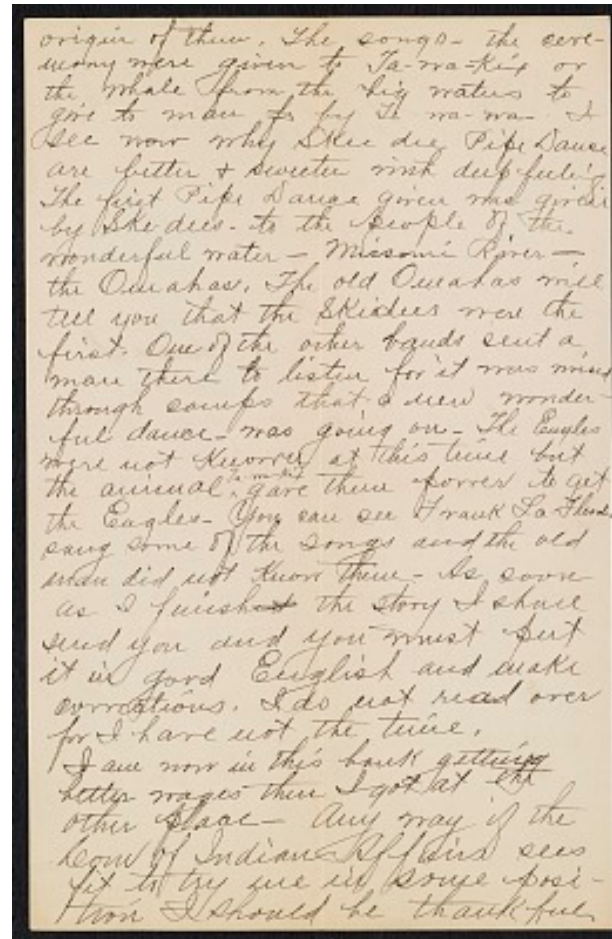 origin of them. The songs - the cere-
mony were given to Ta-wa-Kix or
the whale from the big waters to
give to man fr by Ti-wa-wa - I
see now why Skee dee Pipe Dance
are better & sweeter with deep feeling
The first Pipe Dance given was given
by Ske-dees - to the people of the
wonderful water - Missouri River -
the Omahas. The old Omahas will
tell you that the Skidees were the
first. One of the other bands sent a
man there to listen for it was
through camps that a new wonder-
ful dance - was going on - The Eagles
were not Known at this time but
the animal gave them power to get
the Eagles - You can see Frank La Flesche
sang some of the songs and the old
man did not Know them - As soon
as I finished the story I shall
send you and you must put
it in good English and make
corrections. I do not read over
for I have not the time.
I am now in this bank getting
better wages then I got at the
other place - Any way if the
Com of Indian Affairs sees
fit to try me in some posi-
tion I should be thankful